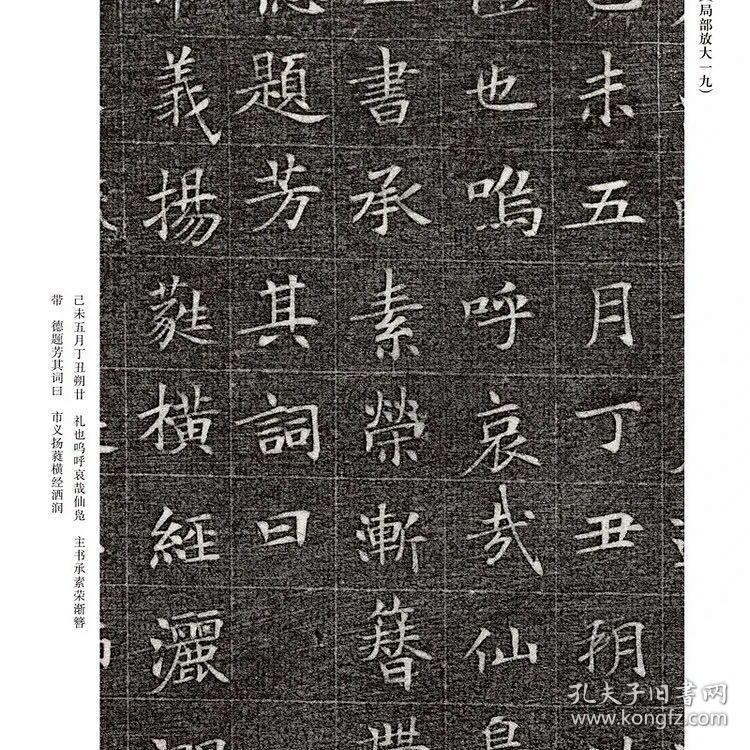 局部放大一九）
己未五月丁丑朔
也嗚呼哀哉仙
書承素榮漸簪
德題芳其詞曰
義揚蕤橫經灑
己未五月丁丑朔廿　礼也呜呼哀哉仙凫　主书承素荣渐簪
带　德题芳其词曰　市义扬蕤横经洒润
孔夫子旧书网
www.kongfz.com